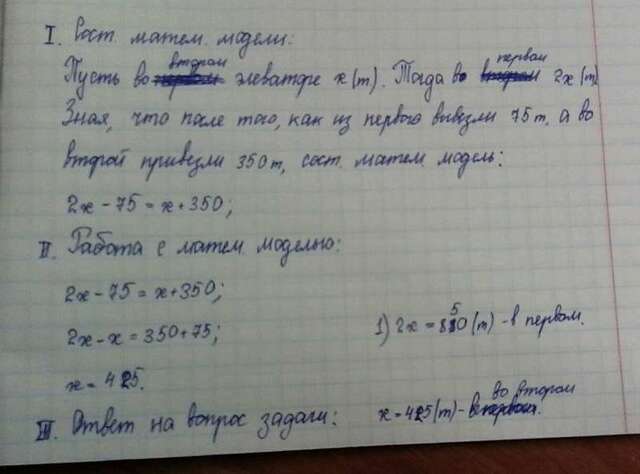 I. Сост. матем. модели:
Пусть во втором элеваторе x (т). Тогда в первом 2x (т)
Зная, что после того, как из первого вывезли 75 т, а во
второй привезли 350 т, сост. матем. модель:
2x - 75 = x + 350;
II. Работа с матем. моделью:
2x - 75 = x + 350;
2x - x = 350 + 75;
x = 425.
1) 2x = 850 (т) - в первом.
III. Ответ на вопрос задачи:
x = 425 (т) - во втором